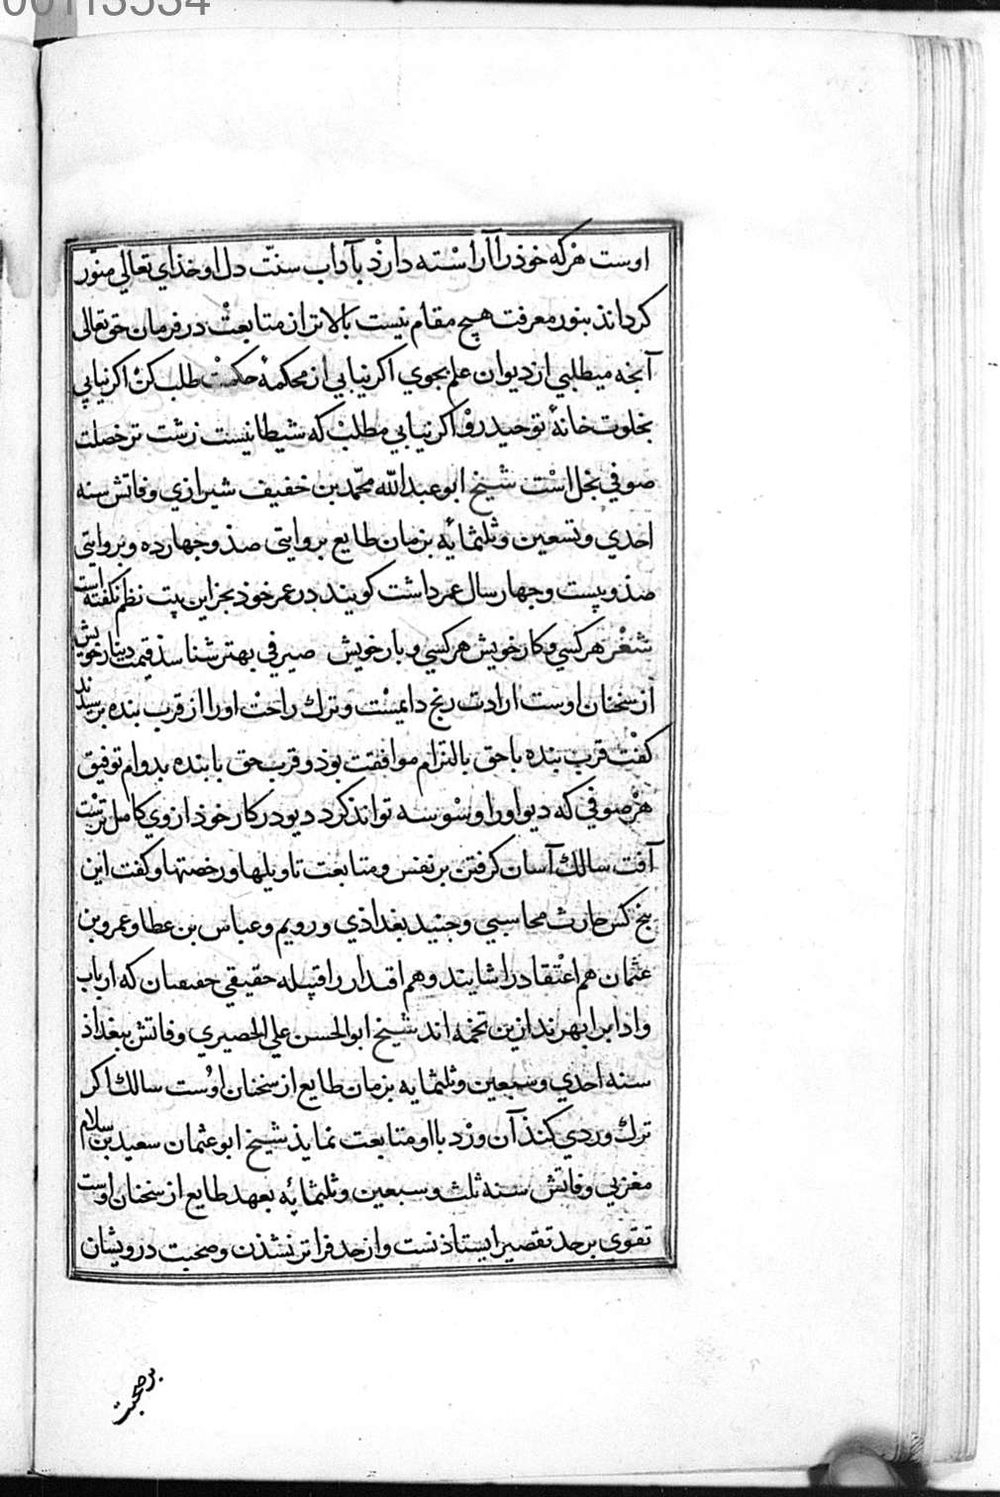 00113534
اوست هركه خوذ را آراسته دارذ بآداب سنت دل او خذاى تعالى منور
كرداند بنور معرفت هيچ مقام نيست بالاتر از متابعت در فرمان حق تعالى
آنجه ميطلبي از ديوان علم بجوي اكر نيابي از محكمهٔ حكمت طلب كن اكر نيابي
بخلوت خانهٔ توحيد رو اكر نيابي مطلب كه شيطانيست زشت تر خصلت
صوفي بخل است شيخ ابو عبد الله محمد بن خفيف شيرازي وفاتش سنه
احدي وتسعين وثلثمايه بزمان طايع بروايتى صذ و جهارده و بروايتى
صذ و بيست وجهار سال عمر داشت كويند در عمر خوذ بجز اين بيت نظم نكفته است
شعر هركسي و كار خويش هركسي و بار خويش صيرفي بهتر شناسذ قيمت دينار خويش
از سخنان اوست ارادت رنج دايمست و ترك راحت او را از قرب بنده برسيدند
كفت قرب بنده با حق بالتزام موافقت بوذ و قرب حق با بنده بدوام توفيق
هر صوفي كه ديو او را وسوسه تواند كرد ديو در كار خوذ از وي كامل ترست
آفت سالك آسان كرفتن بر نفس و متابعت تاويلها و رخصتها و كفت اين
پنج كس حارث محاسبي و جنيد بغداذي و رويم و عباس بن عطا و عمرو بن
عثمان هم اعتقاد را شايند و هم اقتدا را قبيله حقيقي كه ارباب
وادا برابهرند ازين تخمه اند شيخ ابو الحسن علي الحصيري وفاتش ببغداذ
سنه احدي وسبعين وثلثمايه بزمان طايع از سخنان اوست سالك اكر
ترك وردي كنذ آن ورد با او متابعت نمايذ شيخ ابو عثمان سعيد بن سلام
مغربي وفاتش سنه ثلث وسبعين وثلثمايه بعهد طايع از سخنان اوست
تقوى بر حد تقصير ايستاذنست و از حد فراتر نشذن و صحبت درويشان
بر صحبت